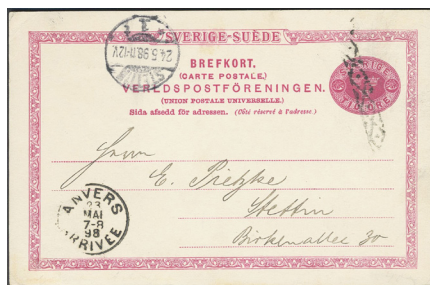 SVERIGE-SUÈDE
BREFKORT.
(CARTE POSTALE.)
VERLDSPOSTFÖRENINGEN.
(UNION POSTALE UNIVERSELLE.)
Sida afsedd för adressen. (Côté réservé à l'adresse.)
SVERIGE
STETTIN
1
24.5.98.11-12V.
Herrn
E. Pietzke
Stettin
Birkenallee 30
ANVERS
23
MAI
7-8
98
ARRIVEE